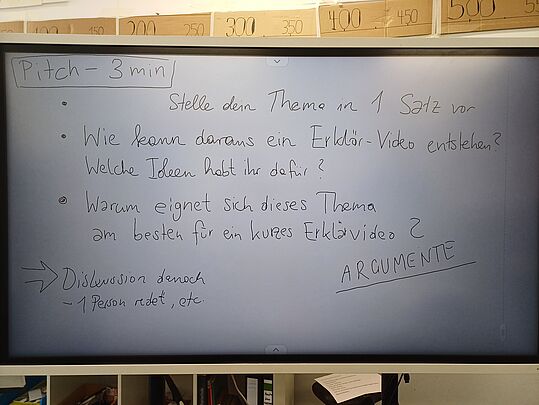 200 250 300 350 400 450 500
Pitch - 3 min
• Stelle dein Thema in 1 Satz vor
• Wie kann daraus ein Erklär-Video entstehen?
Welche Ideen habt ihr dafür?
• Warum eignet sich dieses Thema
am besten für ein kurzes Erklärvideo?
ARGUMENTE
⇒ Diskussion danach
- 1 Person redet, etc.